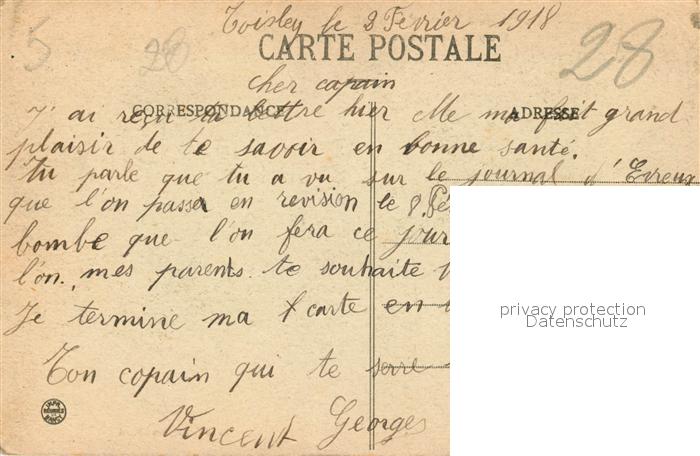 Toisley le 2 Février 1918
5
28
28
CARTE POSTALE
cher copain
CORRESPONDANCE
ADRESSE
J'ai reçu ta lettre hier elle ma fait grand
plaisir de te savoir en bonne santé.
Tu parle que tu a vu sur le journal d'Evreux
que l'on passa en revision le 8 Fé
bombe que l'on fera ce jour
l'on. mes parents te souhaite
Je termine ma carte en
Ton copain qui te serre
Vincent Georges
privacy protection
Datenschutz